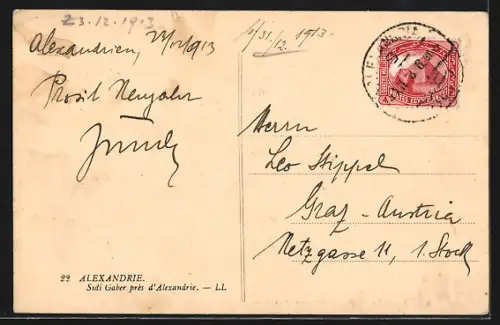 23.12.1913
Alexandrien, 23/12/1913
Prosit Neujahr
31/12. 1913.
Herrn
Leo Stippel
Graz - Austria
Metzgasse 11, 1. Stock
22 ALEXANDRIE.
Sidi Gaber près d'Alexandrie. — LL.